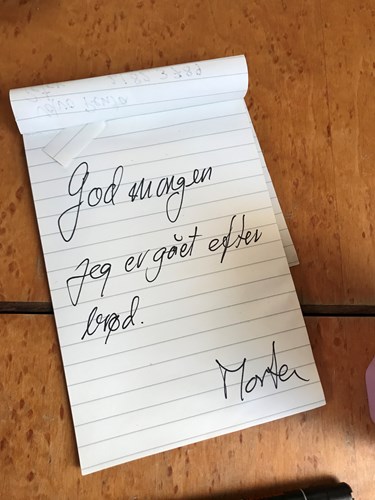 God morgen
Jeg er gået efter
brød.
Morten